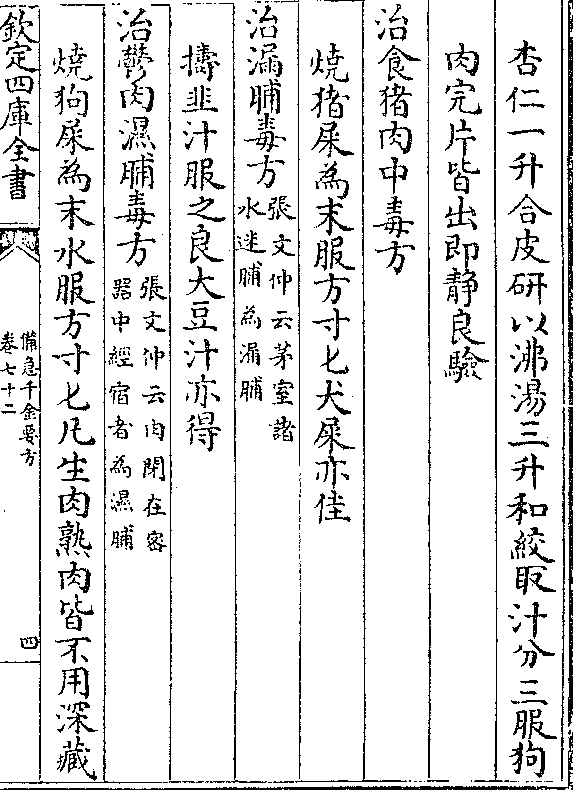 杏仁一升合皮研以沸湯三升和絞取汁分三服狗
肉完片皆出即静良驗
治食猪肉中毒方
燒猪屎為末服方寸匕犬屎亦佳
治漏脯毒方
張文仲云茅室諸
水迷脯為漏脯
擣韭汁服之良大豆汁亦得
治鬱肉濕脯毒方
張文仲云肉閉在宻
器中經宿者為濕脯
燒狗屎為末水服方寸匕凡生肉熟肉皆不用深藏
欽定四庫全書
備急千金要方
卷七十二
四